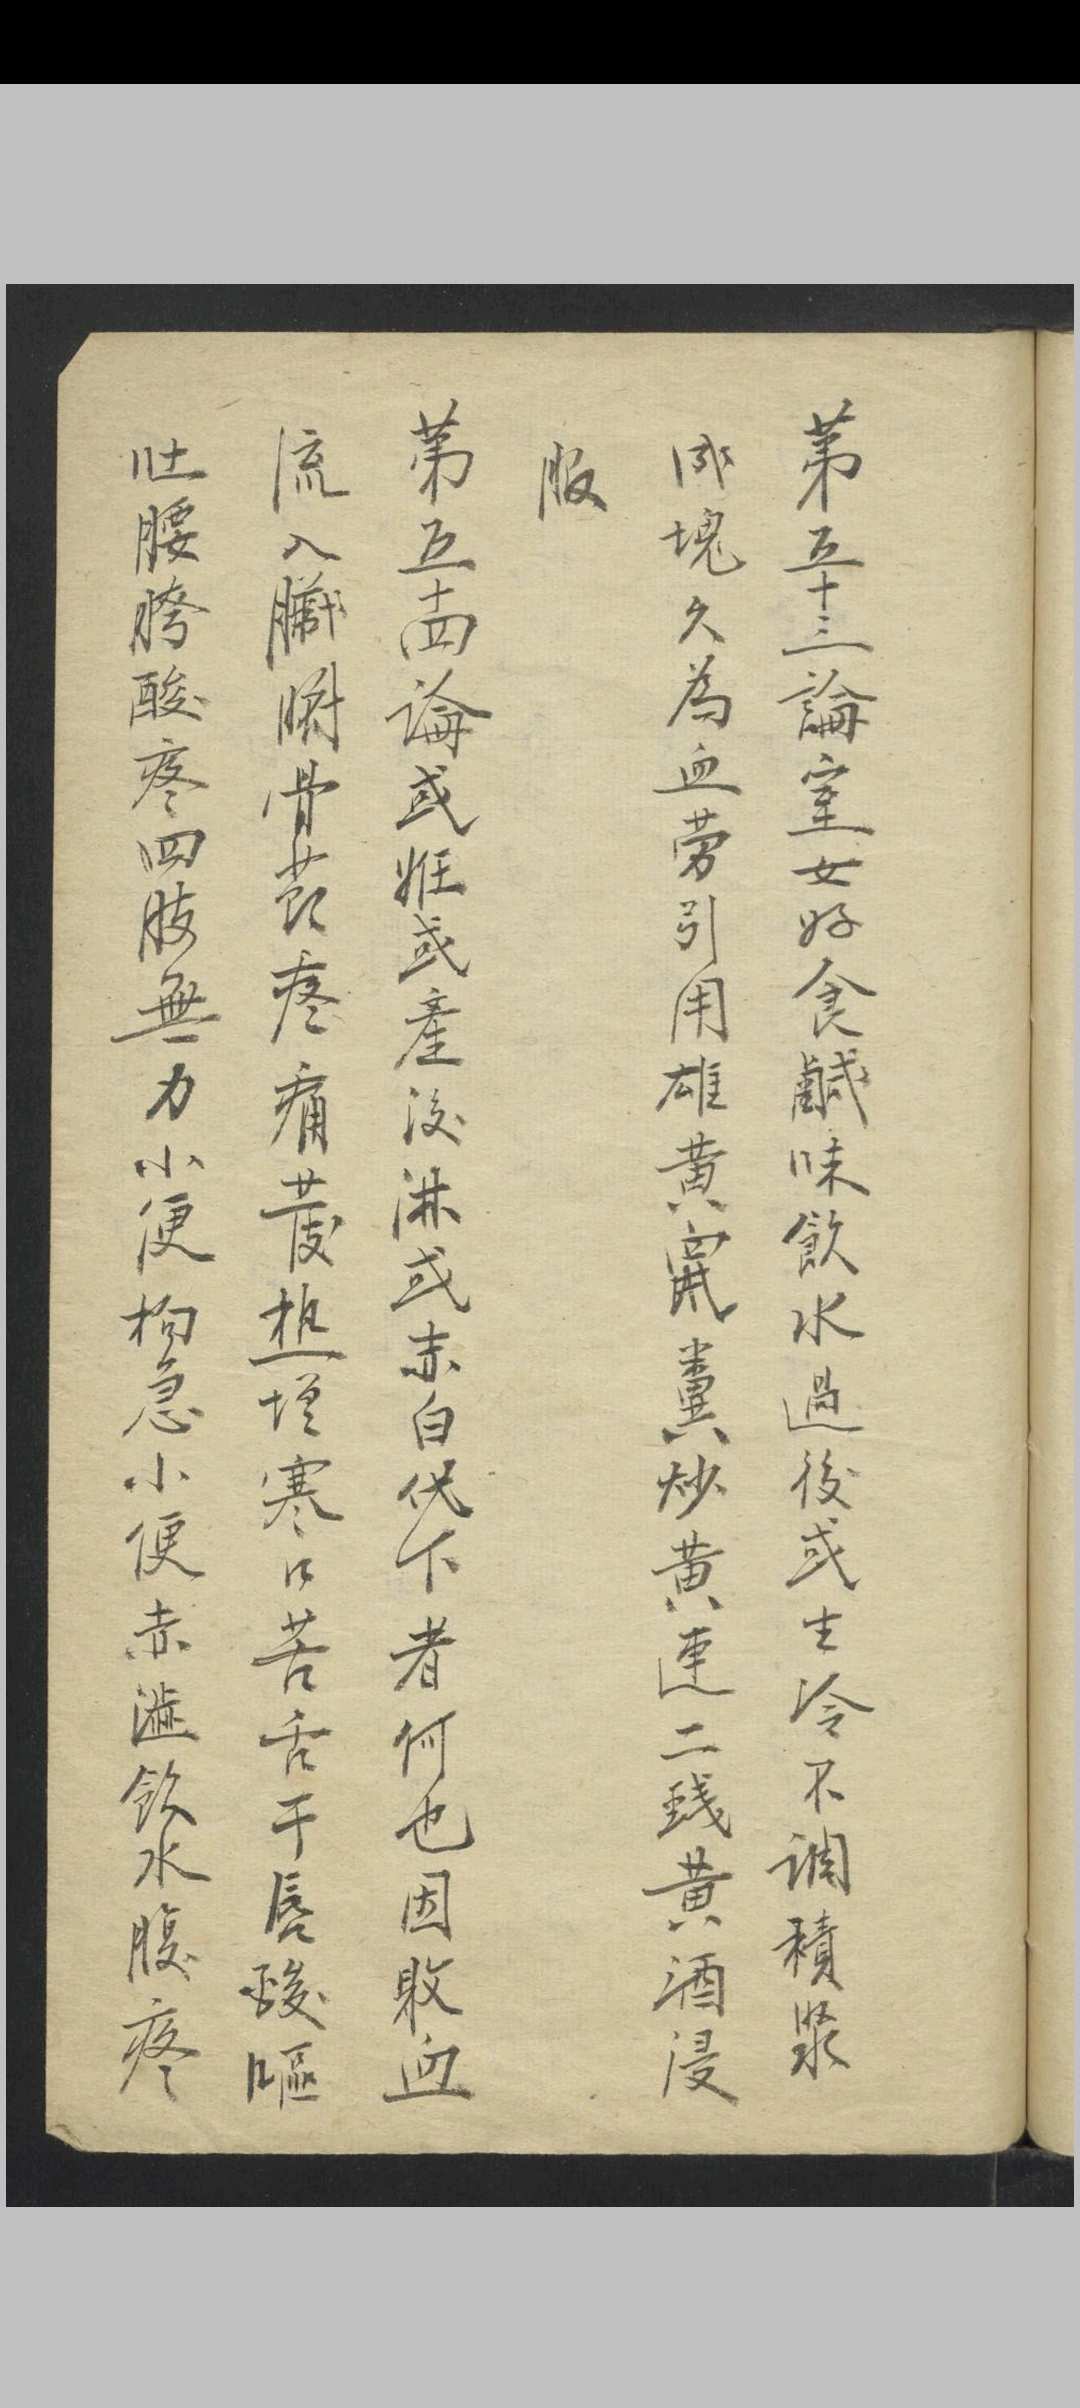 第五十三論室女好食鹹味飲水過後或生冷不調積聚
成塊久為血劳引用雄黄鼠糞炒黄連二錢黄酒浸
服
第五十四論或姙或產後淋或赤白代下者何也因敗血
流入臟腑骨节疼痛發热增寒口苦舌干唇酸嘔
吐腰胯酸疼四肢無力小便拘急小便赤澁飲水腹疼